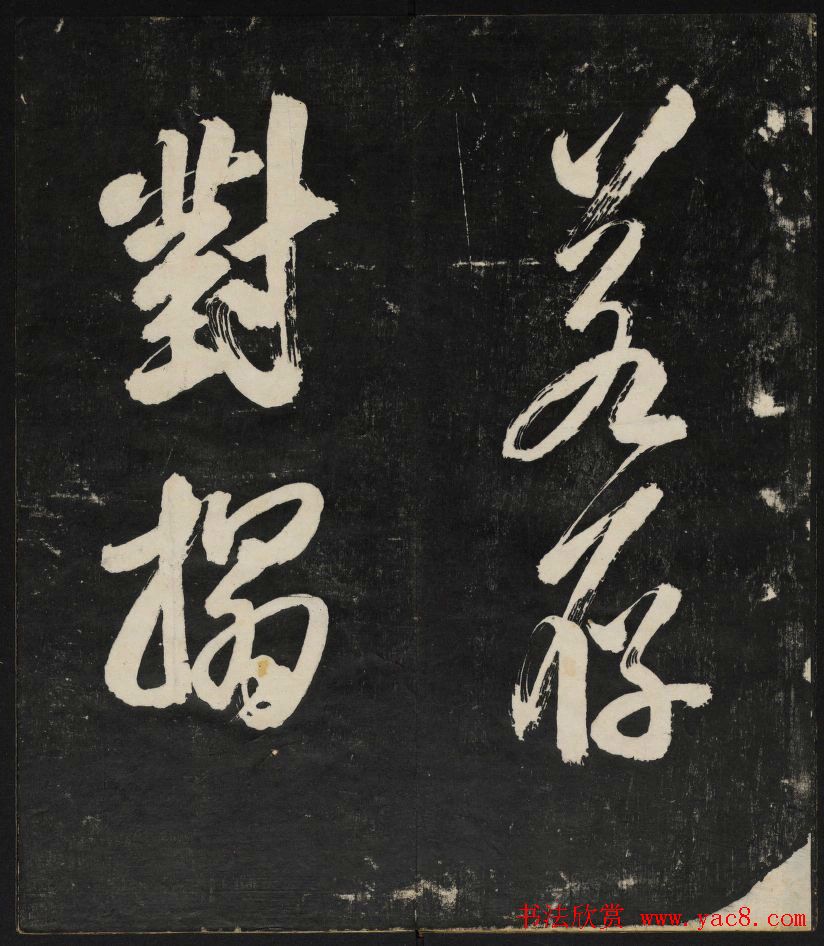 若存
對揭
书法欣赏 www.yac8.com